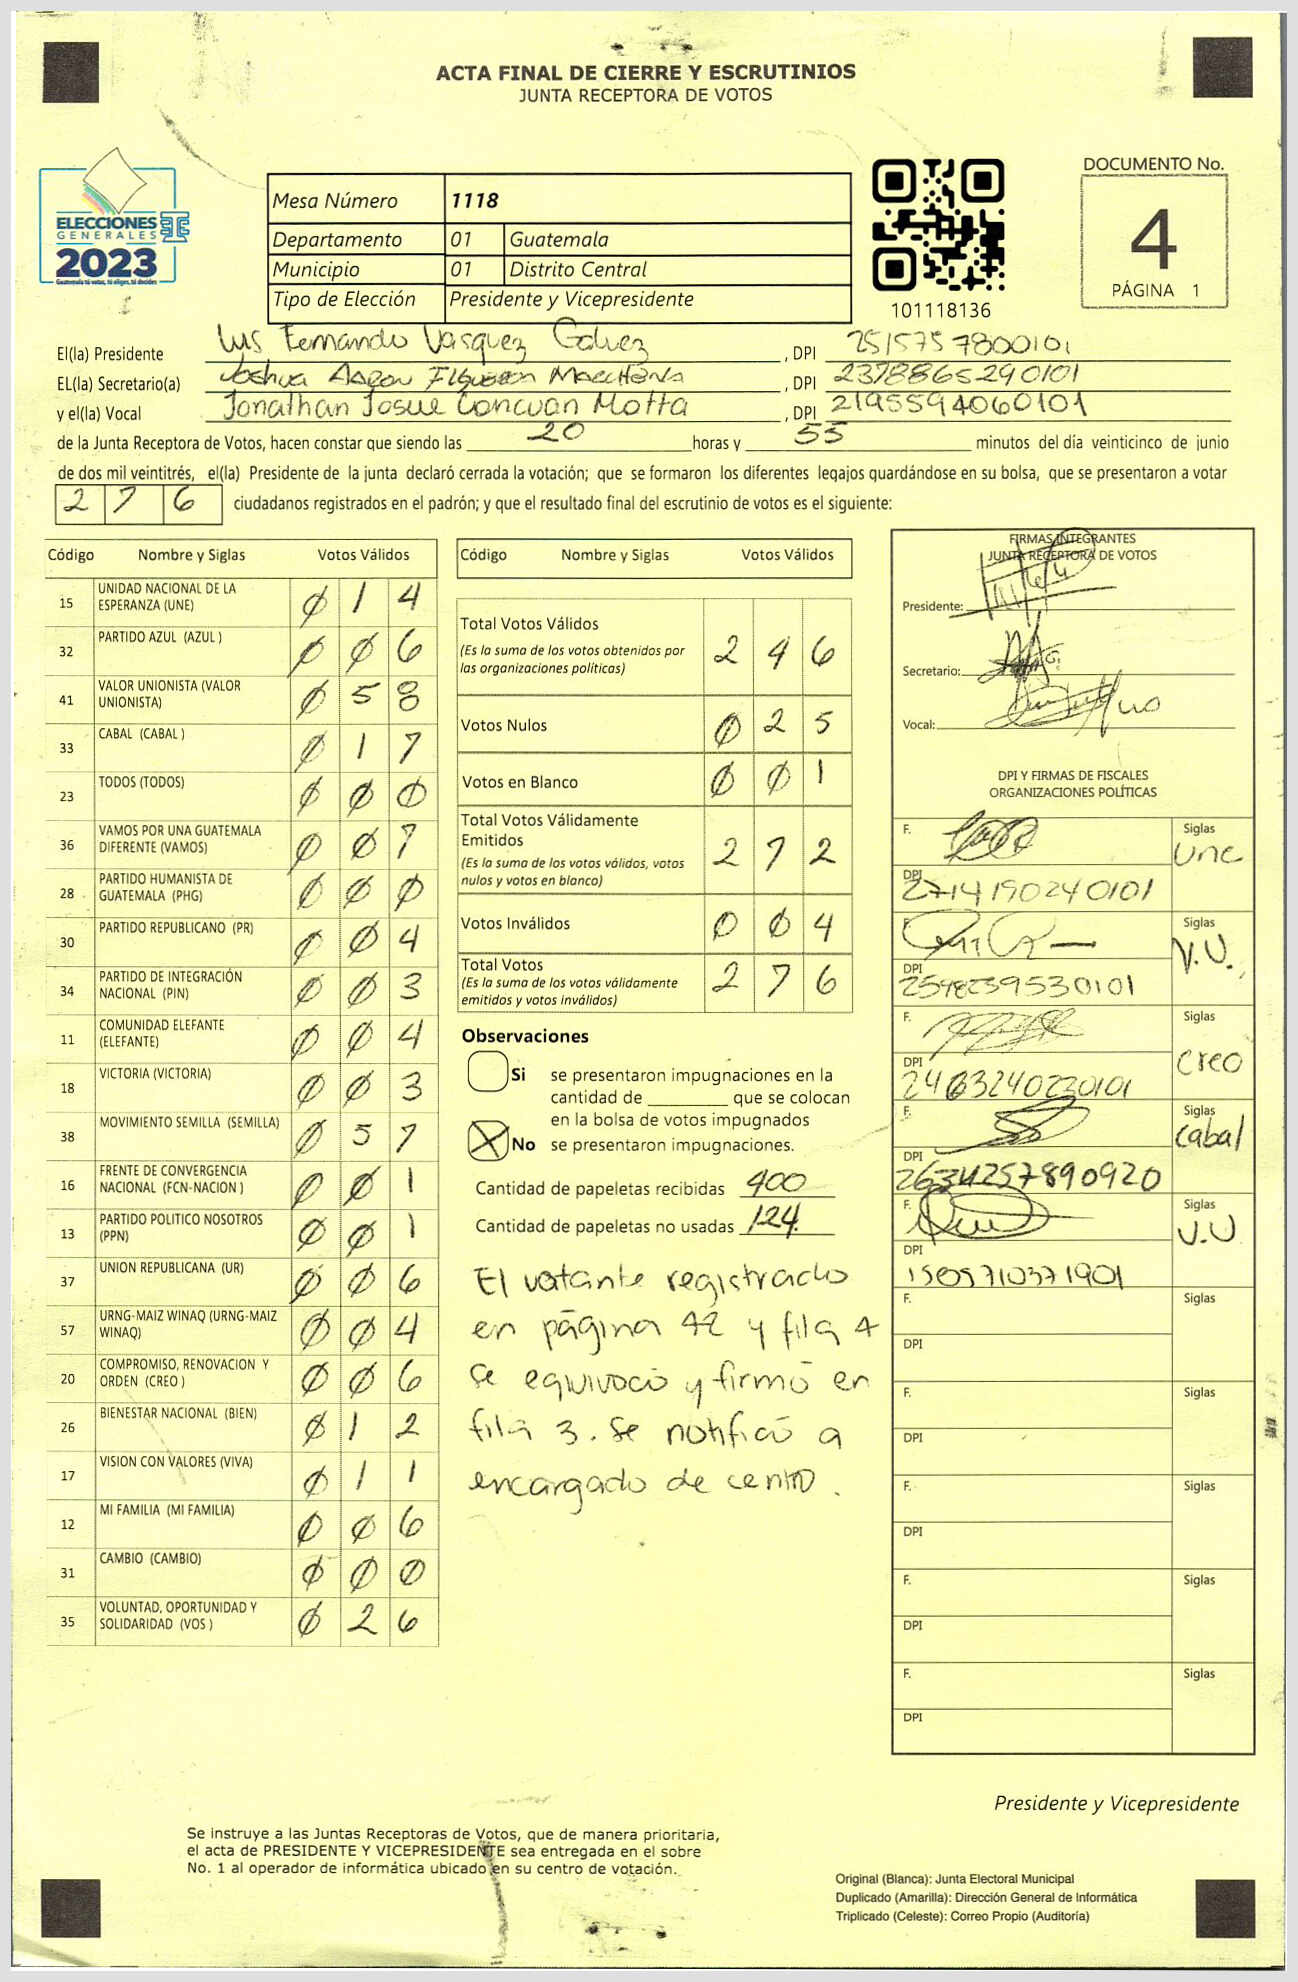 ACTA FINAL DE CIERRE Y ESCRUTINIOS
JUNTA RECEPTORA DE VOTOS
ELECCIONES
GENERALES
2023
Guatemala tú votas, tú eliges, tú decides
Mesa Número 1118
Departamento 01 Guatemala
Municipio 01 Distrito Central
Tipo de Elección Presidente y Vicepresidente
101118136
DOCUMENTO No.
4
PÁGINA 1
El(la) Presidente Luis Fernando Vasquez Galvez, DPI 2515757800101
EL(la) Secretario(a) Joshua Aaron Figueroa, DPI 2378865290101
y el(la) Vocal Jonathan Josue Concuan Motta, DPI 2195594060101
de la Junta Receptora de Votos, hacen constar que siendo las 20 horas y 55 minutos del día veinticinco de junio
de dos mil veintitrés, el(la) Presidente de la junta declaró cerrada la votación; que se formaron los diferentes legajos guardándose en su bolsa, que se presentaron a votar
2 7 6 ciudadanos registrados en el padrón; y que el resultado final del escrutinio de votos es el siguiente:
Código Nombre y Siglas Votos Válidos
15 UNIDAD NACIONAL DE LA ESPERANZA (UNE) 0 1 4
32 PARTIDO AZUL (AZUL ) 0 0 6
41 VALOR UNIONISTA (VALOR UNIONISTA) 0 5 8
33 CABAL (CABAL ) 0 1 7
23 TODOS (TODOS) 0 0 0
36 VAMOS POR UNA GUATEMALA DIFERENTE (VAMOS) 0 0 7
28 PARTIDO HUMANISTA DE GUATEMALA (PHG) 0 0 0
30 PARTIDO REPUBLICANO (PR) 0 0 4
34 PARTIDO DE INTEGRACIÓN NACIONAL (PIN) 0 0 3
11 COMUNIDAD ELEFANTE (ELEFANTE) 0 0 4
18 VICTORIA (VICTORIA) 0 0 3
38 MOVIMIENTO SEMILLA (SEMILLA) 0 5 7
16 FRENTE DE CONVERGENCIA NACIONAL (FCN-NACION ) 0 0 1
13 PARTIDO POLITICO NOSOTROS (PPN) 0 0 1
37 UNION REPUBLICANA (UR) 0 0 6
57 URNG-MAIZ WINAQ (URNG-MAIZ WINAQ) 0 0 4
20 COMPROMISO, RENOVACION Y ORDEN (CREO ) 0 0 6
26 BIENESTAR NACIONAL (BIEN) 0 1 2
17 VISION CON VALORES (VIVA) 0 1 1
12 MI FAMILIA (MI FAMILIA) 0 0 6
31 CAMBIO (CAMBIO) 0 0 0
35 VOLUNTAD, OPORTUNIDAD Y SOLIDARIDAD (VOS ) 0 2 6
Código Nombre y Siglas Votos Válidos
Total Votos Válidos 2 4 6
(Es la suma de los votos obtenidos por
las organizaciones políticas)
Votos Nulos 0 2 5
Votos en Blanco 0 0 1
Total Votos Válidamente
Emitidos 2 7 2
(Es la suma de los votos válidos, votos
nulos y votos en blanco)
Votos Inválidos 0 0 4
Total Votos 2 7 6
(Es la suma de los votos válidamente
emitidos y votos inválidos)
Observaciones
Si se presentaron impugnaciones en la
cantidad de ________ que se colocan
en la bolsa de votos impugnados
X No se presentaron impugnaciones.
Cantidad de papeletas recibidas 400
Cantidad de papeletas no usadas 124
El votante registrado
en página 42 y fila 4
se equivocó y firmó en
fila 3. Se notificó a
encargado de centro.
FIRMAS INTEGRANTES
JUNTA RECEPTORA DE VOTOS
Presidente:
Secretario:
Vocal:
DPI Y FIRMAS DE FISCALES
ORGANIZACIONES POLÍTICAS
F. Siglas une
DPI 2714190240101
F. Siglas V.U.
DPI 2598239530101
F. Siglas Creo
DPI 2463240230101
F. Siglas Cabal
DPI 2634257890920
F. Siglas V.U
DPI 1505710371901
F. Siglas
DPI
F. Siglas
DPI
F. Siglas
DPI
F. Siglas
DPI
F. Siglas
DPI
Presidente y Vicepresidente
Se instruye a las Juntas Receptoras de Votos, que de manera prioritaria,
el acta de PRESIDENTE Y VICEPRESIDENTE sea entregada en el sobre
No. 1 al operador de informática ubicado en su centro de votación.
Original (Blanca): Junta Electoral Municipal
Duplicado (Amarilla): Dirección General de Informática
Triplicado (Celeste): Correo Propio (Auditoría)